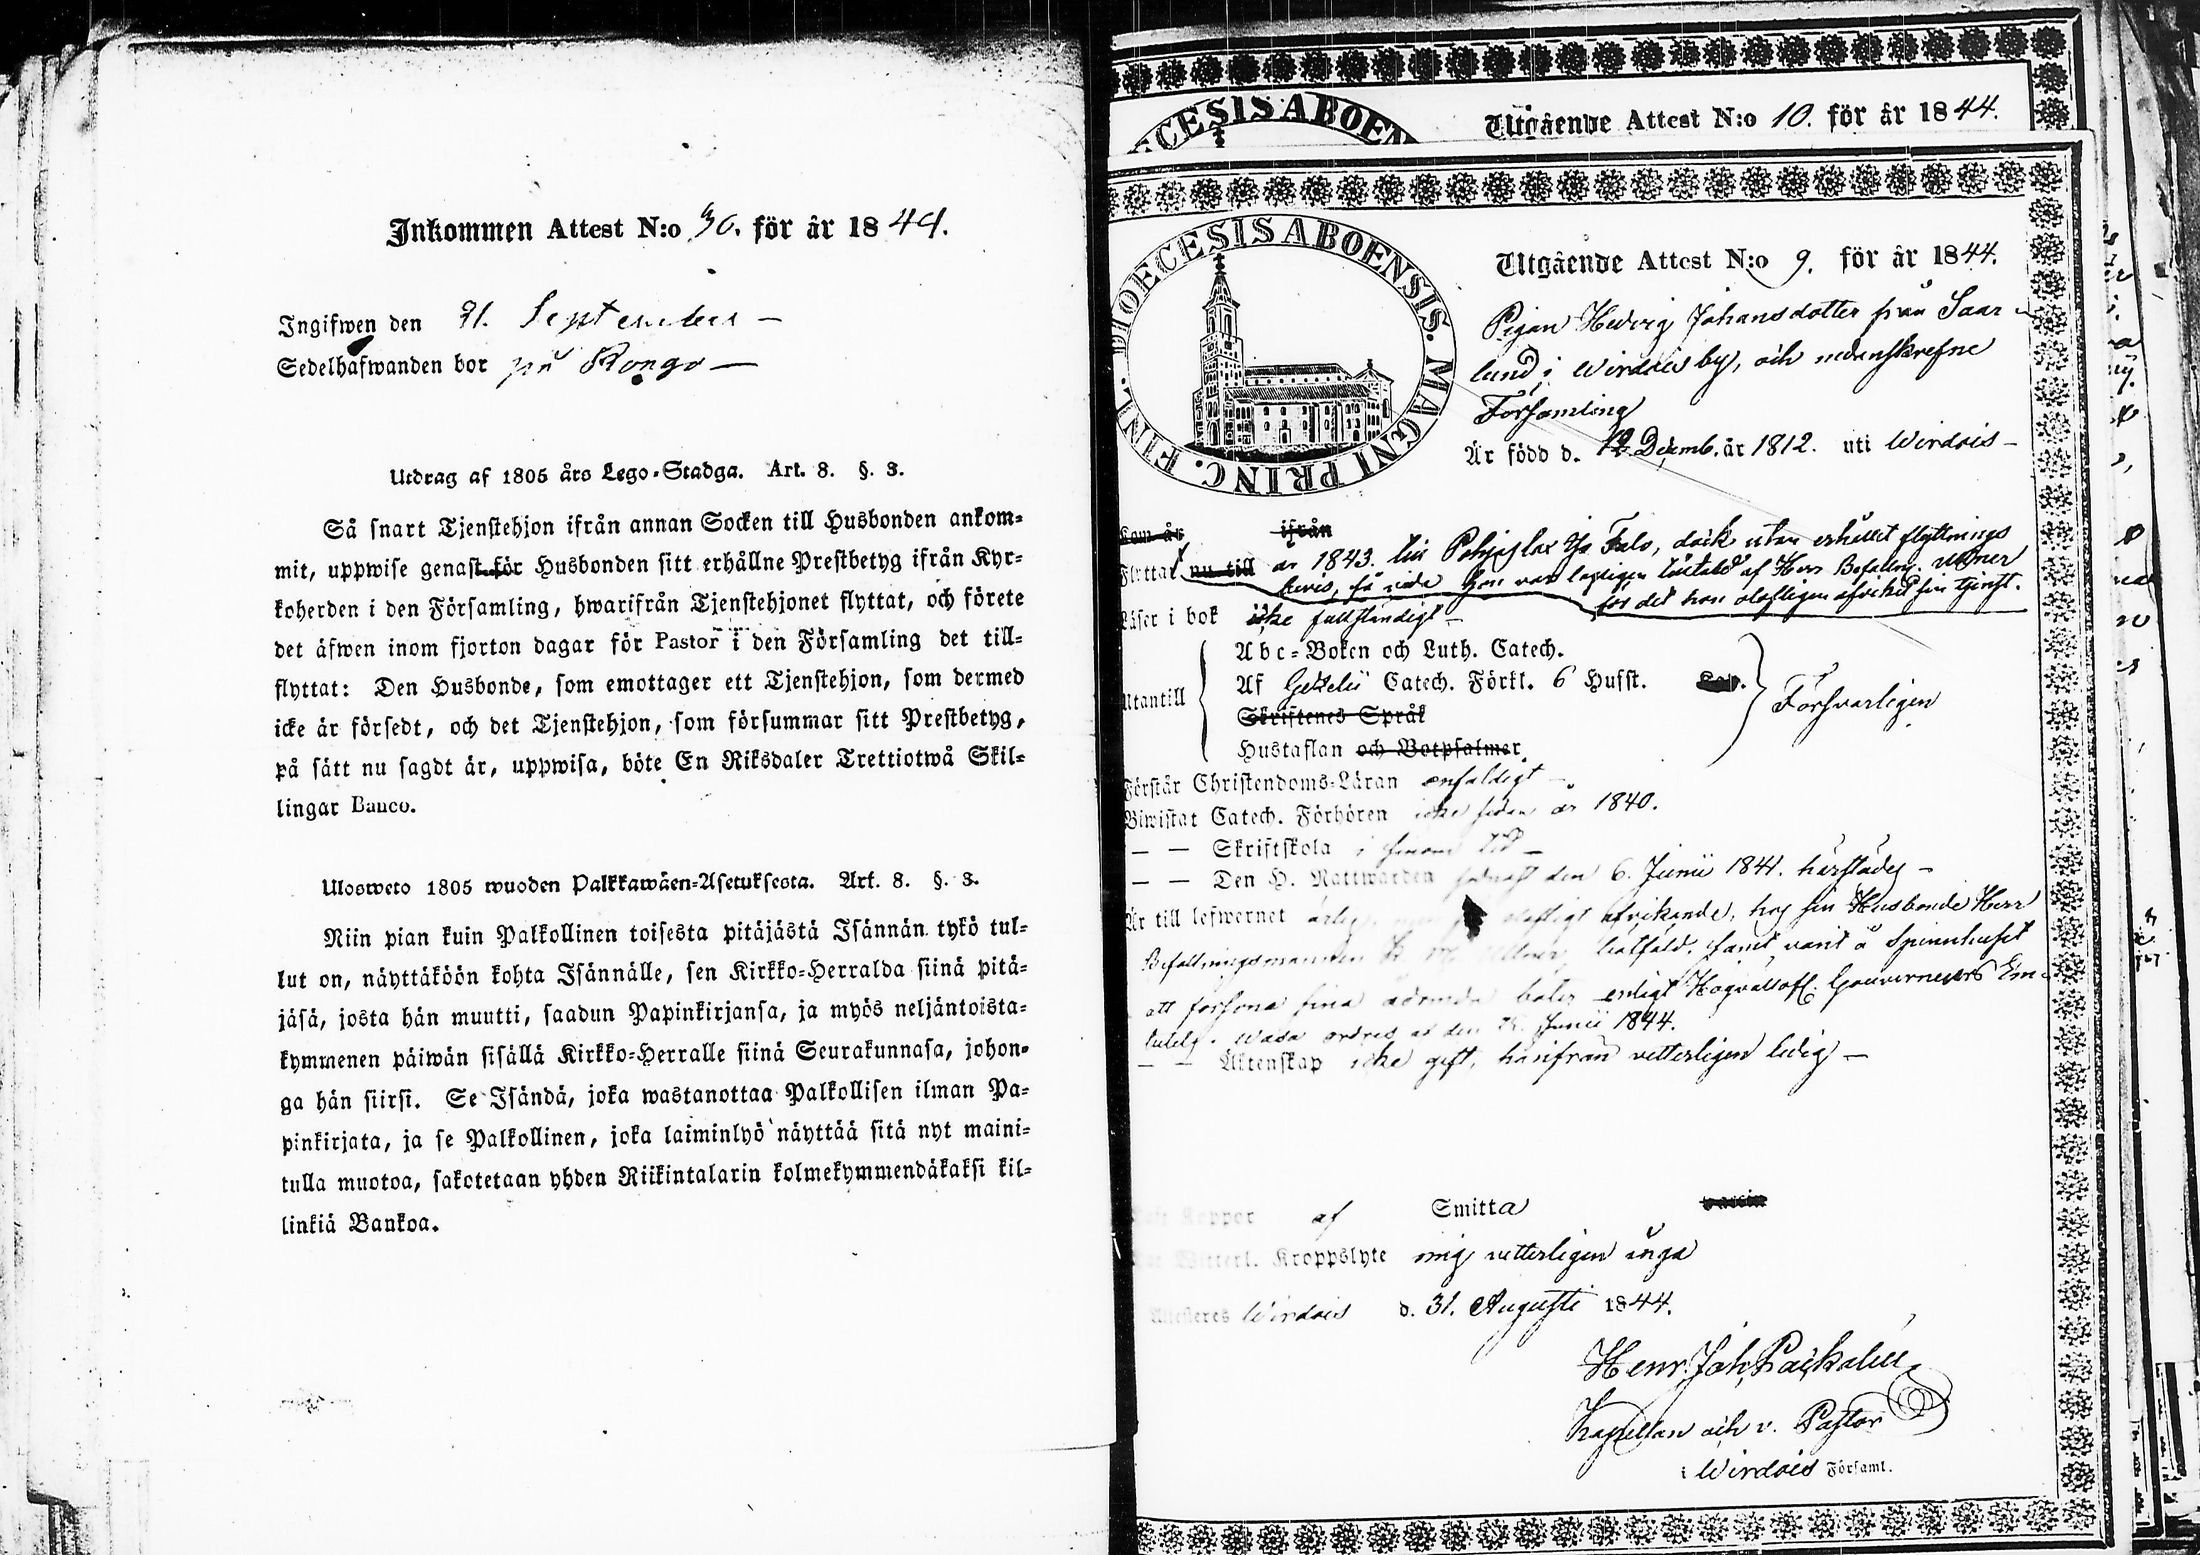 Inkommen Attest N:o 30. för år 1844.
Ingifwen den 21. September —
Sedelhafwanden bor på Kongo —
Utdrag af 1805 års Lego-Stadga. Art. 8. §. 3.
Så snart Tjenstehjon ifrån annan Socken till Husbonden ankom-
mit, uppwise genast för Husbonden sitt erhållne Prestbetyg ifrån Kyr-
koherden i den Församling, hwarifrån Tjenstehjonet flyttat, och förete
det äfwen inom fjorton dagar för Pastor i den Församling det till-
flyttat: Den Husbonde, som emottager ett Tjenstehjon, som dermed
icke är försedt, och det Tjenstehjon, som försummar sitt Prestbetyg,
på sätt nu sagdt är, uppwisa, böte En Riksdaler Trettiotwå Skil-
lingar Banco.
Ulosweto 1805 wuoden Palkkawäen-Asetuksesta. Art. 8. §. 3.
Niin pian kuin Palkollinen toisesta pitäjästä Isännän tykö tul-
lut on, näyttäköön kohta Isännälle, sen Kirkko-Herralda siinä pitä-
jäsä, josta hän muutti, saadun Papinkirjansa, ja myös neljäntoista-
kymmenen päiwän sisällä Kirkko-Herralle siinä Seurakunnasa, johon-
ga hän siirsi. Se Isändä, joka wastanottaa Palkollisen ilman Pa-
pinkirjata, ja se Palkollinen, joka laiminlyö näyttää sitä nyt maini-
tulla muotoa, sakotetaan yhden Riikintalarin kolmekymmendäkaksi kil-
linkiä Bankoa.
CESIS ABOEN
Utgående Attest N:o 10. för år 1844.
DIOECESIS ABOENSIS. MAGNI PRINC. FINL.
Utgående Attest N:o 9. för år 1844.
Pigan Hedvig Johansdotter från Saar-
lund i Wirdois by, och nedanskrefne
Församling
Är född d. 12 Decemb. år 1812. uti Wirdois —
Kom år ifrån
Flyttat nu till år 1843. till Pohjaslax Falo, dock utan erhållit flyttnings
bevis, få vida hon var lagligen tilltald af Herr Befallnm.
för det hon olagligen afvikit sin tjenst.
Läser i bok icke fullständigt —
Utantill
Abc-Boken och Luth. Catech.
Af Gezelii Catech. Förkl. 6 Husst. Cap.
Skriftenes Språk
Hustaflan och Botpsalmer.
Försvarligen
Förstår Christendoms-Läran enfaldigt —
Biwistat Catech. Förhören icke sedan år 1840.
— — Skriftskola i sinom tid —
— — Den H. Nattwarden senast den 6. Junii 1841. härstädes —
Är till lefwernet olagligt afvikande, hos sin Husbonde Herr
Befallningsmannen botfäld, samt varit å Spinnhuset
att försona sina ådömda böter enligt Högvällofl. Gouverneurs Em-
Wasa ordres af den Junii 1844.
— — Äktenskap icke gift, härifrån vetterligen ledig —
Haft Koppor af Smitta vaccin
Har Witterl. Kroppslyte mig vetterligen inga
Attesteres Wirdois d. 31. Augusti 1844.
Henr. Joh. Paskalin
Kapellan och v. Pastor
i Wirdois Församl.